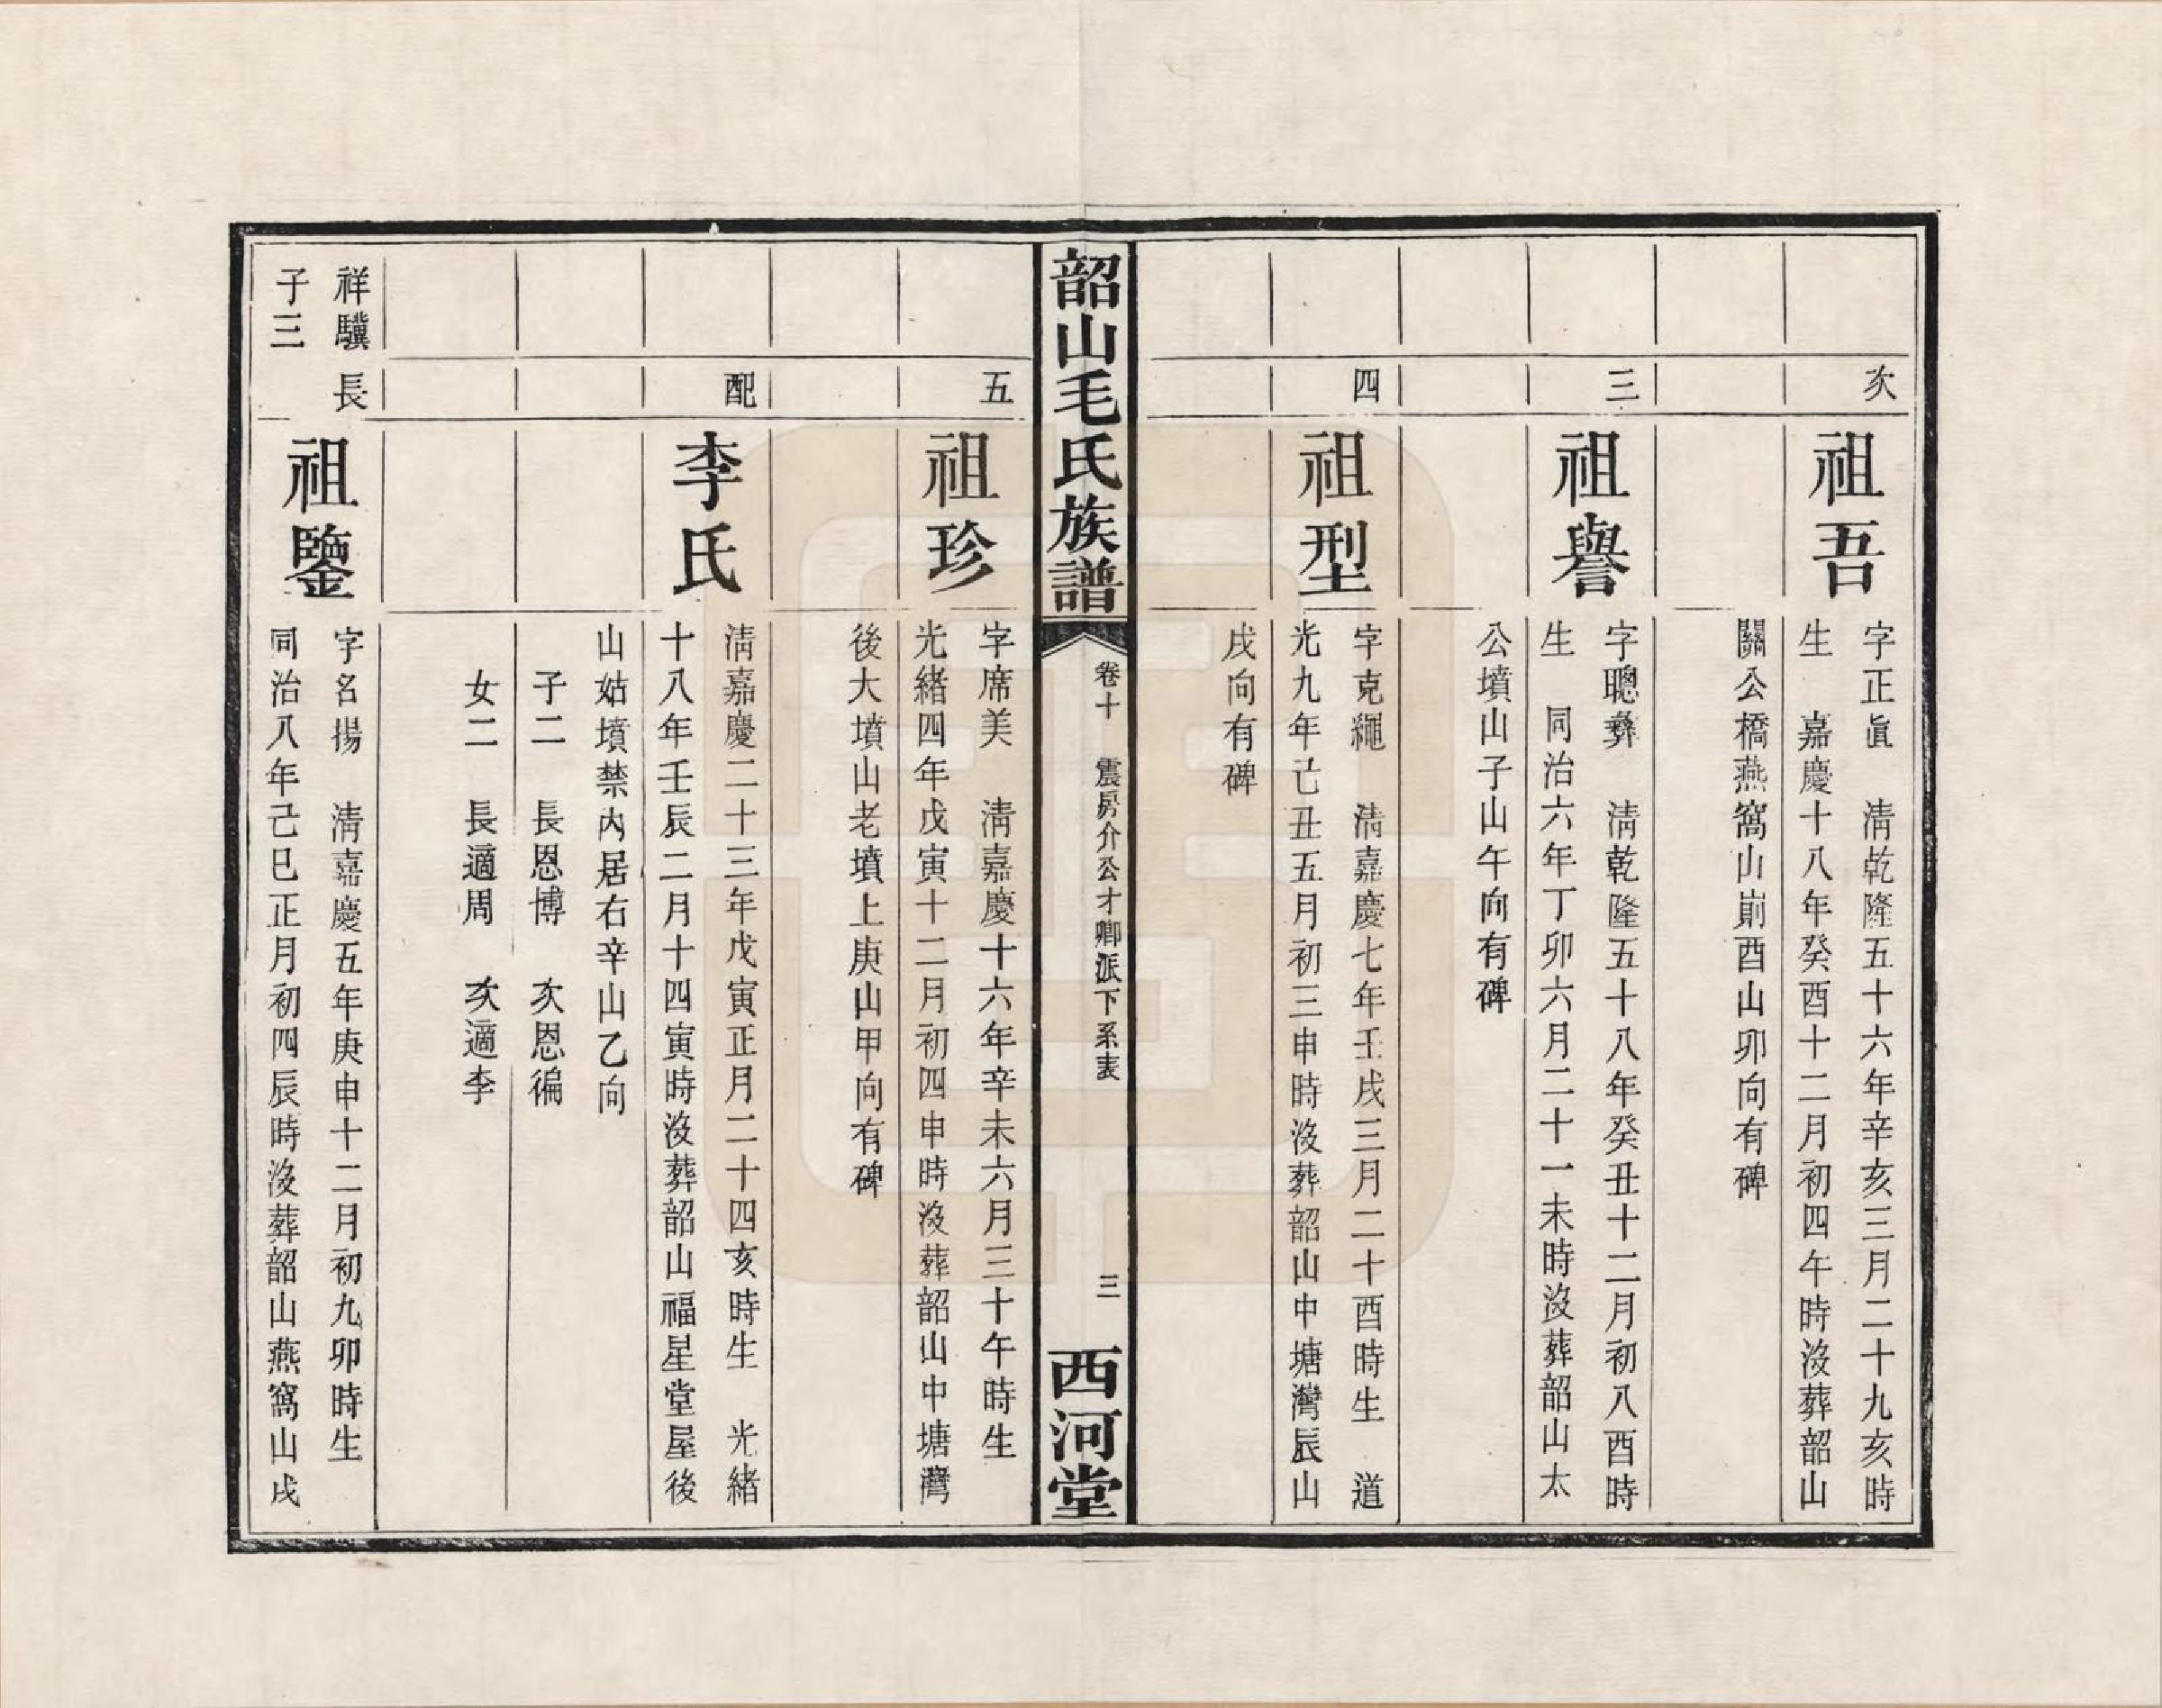 次
祖吾
字正眞　淸乾隆五十六年辛亥三月二十九亥時
生　嘉慶十八年癸酉十二月初四午時沒葬韶山
關公橋燕窩山崩酉山卯向有碑
三
祖譽
字聰彝　淸乾隆五十八年癸丑十二月初八酉時
生　同治六年丁卯六月二十一未時沒葬韶山太
公墳山子山午向有碑
四
祖型
字克繩　淸嘉慶七年壬戌三月二十酉時生　道
光九年己丑五月初三申時沒葬韶山中塘灣辰山
戌向有碑
韶山毛氏族譜
卷十　震房介公才卿派下系表
三
西河堂
五
祖珍
字席美　淸嘉慶十六年辛未六月三十午時生
光緒四年戊寅十二月初四申時沒葬韶山中塘灣
後大墳山老墳上庚山甲向有碑
配
李氏
淸嘉慶二十三年戊寅正月二十四亥時生　光緒
十八年壬辰二月十四寅時沒葬韶山福星堂屋後
山姑墳禁內居右辛山乙向
子二　長恩博　次恩徧
女二　長適周　次適李
祥驥　長
子三
祖鑒
字名揚　淸嘉慶五年庚申十二月初九卯時生
同治八年己巳正月初四辰時沒葬韶山燕窩山戌